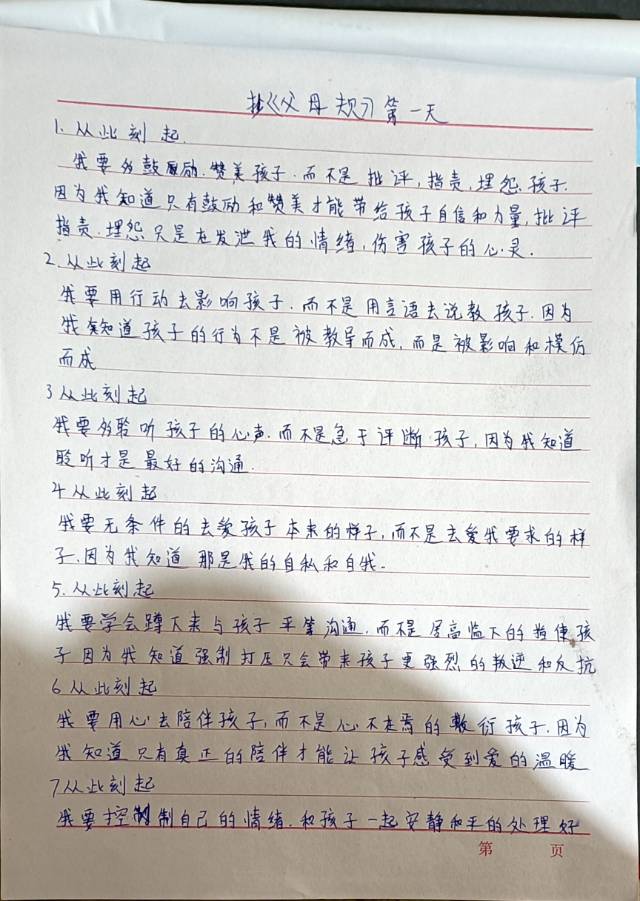 抄《父母规》第一天
1. 从此刻起.
我要多鼓励.赞美孩子.而不是批评,指责,埋怨.孩子.
因为我知道只有鼓励和赞美才能带给孩子自信和力量,批评
指责.埋怨只是在发泄我的情绪,伤害孩子的心灵.
2.从此刻起
我要用行动去影响孩子.而不是用言语去说教孩子.因为
我知道孩子的行为不是被教导而成,而是被影响和模仿
而成
3从此刻起
我要多聆听孩子的心声.而不是急于评断孩子,因为我知道
聆听才是最好的沟通.
4从此刻起
我要无条件的去爱孩子本来的样子,而不是去爱我要求的样
子.因为我知道那是我的自私和自我.
5.从此刻起
我要学会蹲下来与孩子平等沟通,而不是居高临下的指使孩
子因为我知道强制打压只会带来孩子更强烈的叛逆和反抗
6从此刻起
我要用心去陪伴孩子,而不是心不在焉的敷衍孩子.因为
我知道只有真正的陪伴才能让孩子感受到爱的温暖
7从此刻起
我要控制自己的情绪.和孩子一起安静和平的处理好
第 页